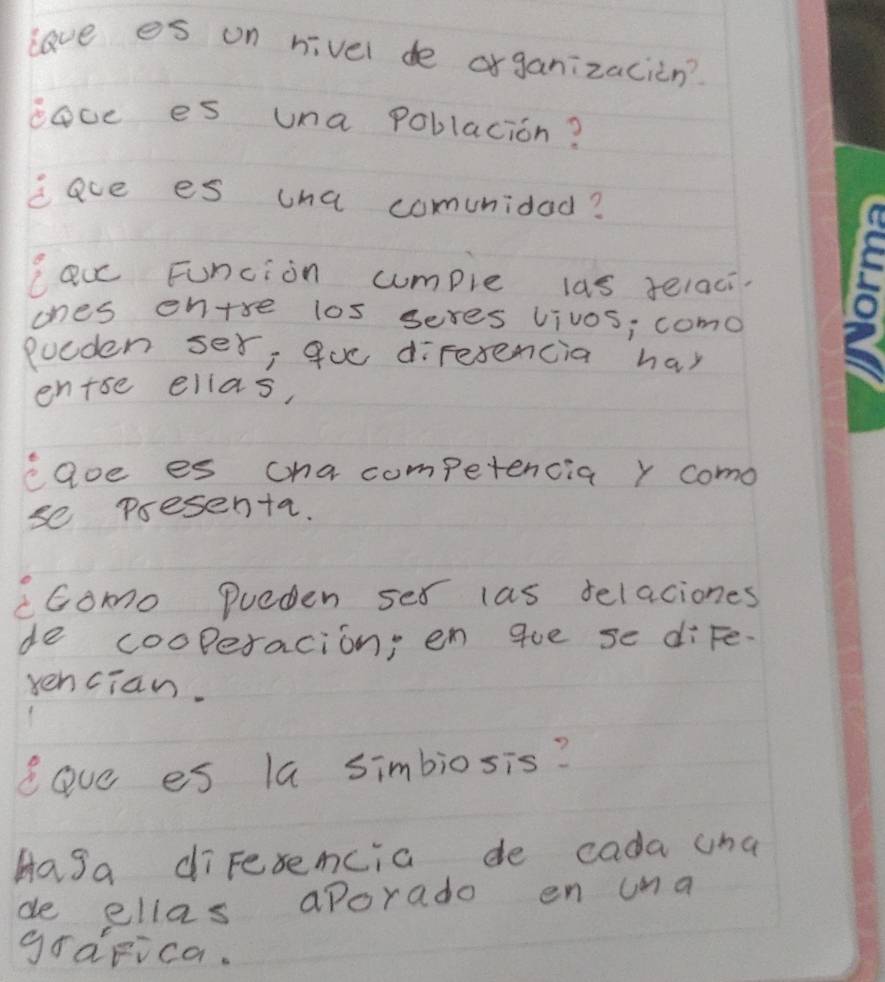 ¿Que es un nivel de organizaciòn?
¿Que es una población?
¿Que es una comunidad?
¿Que Función cumple las relaci-
ones entre los seres vivos; como
pueden ser; que diferencia hay
entre ellas,
¿que es una competencia y como
se presenta.
¿Como pueden ser las relaciones
de cooperación; en que se dife-
rencian.
¿Que es la simbiosis?
Haga diferencia de cada una
de ellas aporado en una
gráfica.
Norma